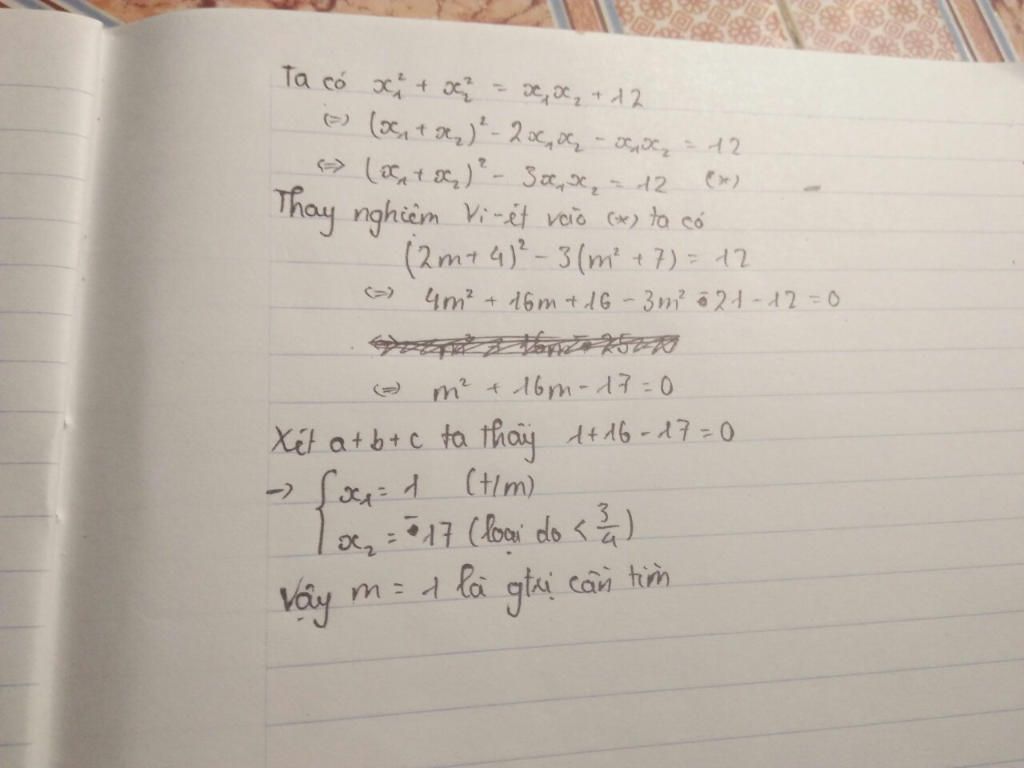 Ta có x₁² + x₂² = x₁x₂ + 12
<=> (x₁ + x₂)² - 2x₁x₂ - x₁x₂ = 12
<=> (x₁ + x₂)² - 3x₁x₂ = 12 (*)
Thay nghiệm Vi-ét vào (*) ta có
(2m + 4)² - 3(m² + 7) = 12
<=> 4m² + 16m + 16 - 3m² - 21 - 12 = 0
<=> m² + 16m - 17 = 0
Xét a + b + c ta thấy 1 + 16 - 17 = 0
-> { x₁ = 1 (t/m)
x₂ = -17 (loại do < 3/4)
Vậy m = 1 là gtrị cần tìm